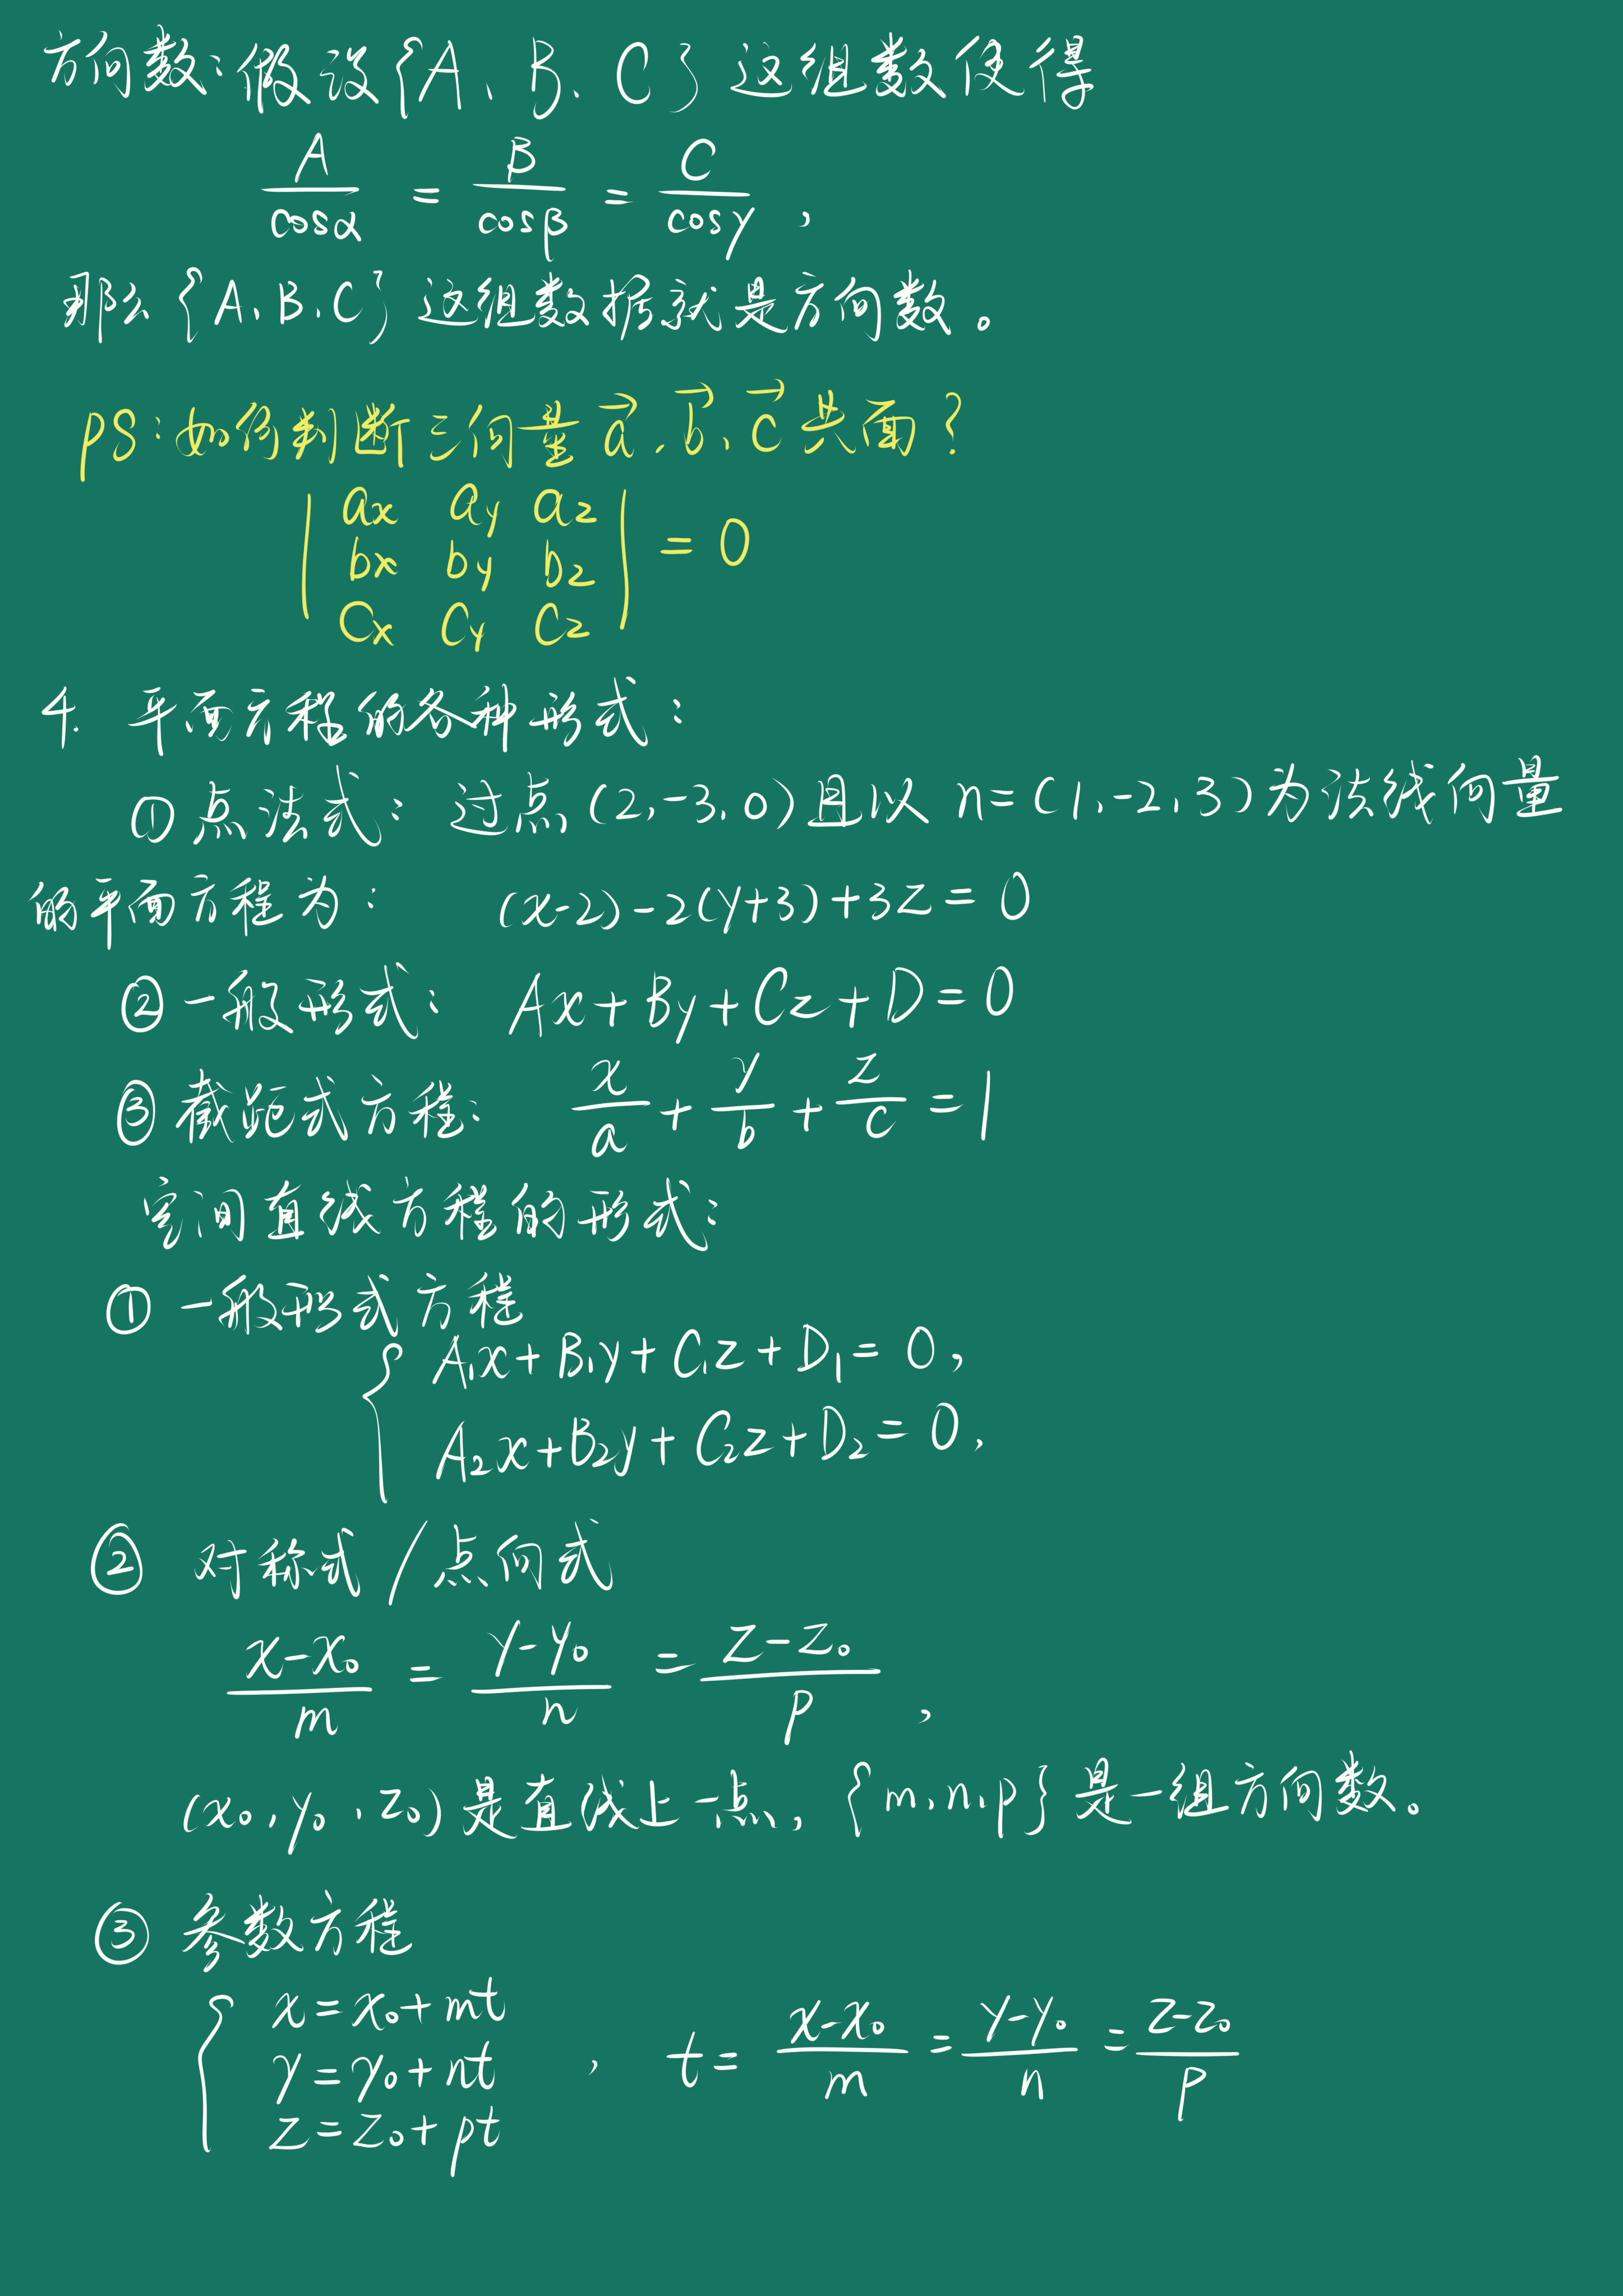 方向数:假设{A、B、C}这组数使得
A/cosα = B/cosβ = C/cosγ ,
那么{A、B、C}这组数据就是方向数。
PS:如何判断三向量 a⃗、b⃗、c⃗ 共面?
| ax ay az |
| bx by bz | = 0
| Cx Cy Cz |
4. 平面方程的各种形式:
① 点法式: 过点(2,-3,0)且以 n=(1,-2,3)为法线向量
的平面方程为: (x-2)-2(y+3)+3z=0
② 一般形式: Ax+By+Cz+D=0
③ 截距式方程: x/a + y/b + z/c = 1
空间直线方程的形式:
① 一般形式方程
{ A₁x+B₁y+C₁z+D₁=0,
A₂x+B₂y+C₂z+D₂=0,
② 对称式/点向式
(x-x₀)/m = (y-y₀)/n = (z-z₀)/p ,
(x₀,y₀,z₀)是直线上一点,{m,n,p}是一组方向数。
③ 参数方程
{ x=x₀+mt
y=y₀+nt , t= (x-x₀)/m = (y-y₀)/n = (z-z₀)/p
z=z₀+pt